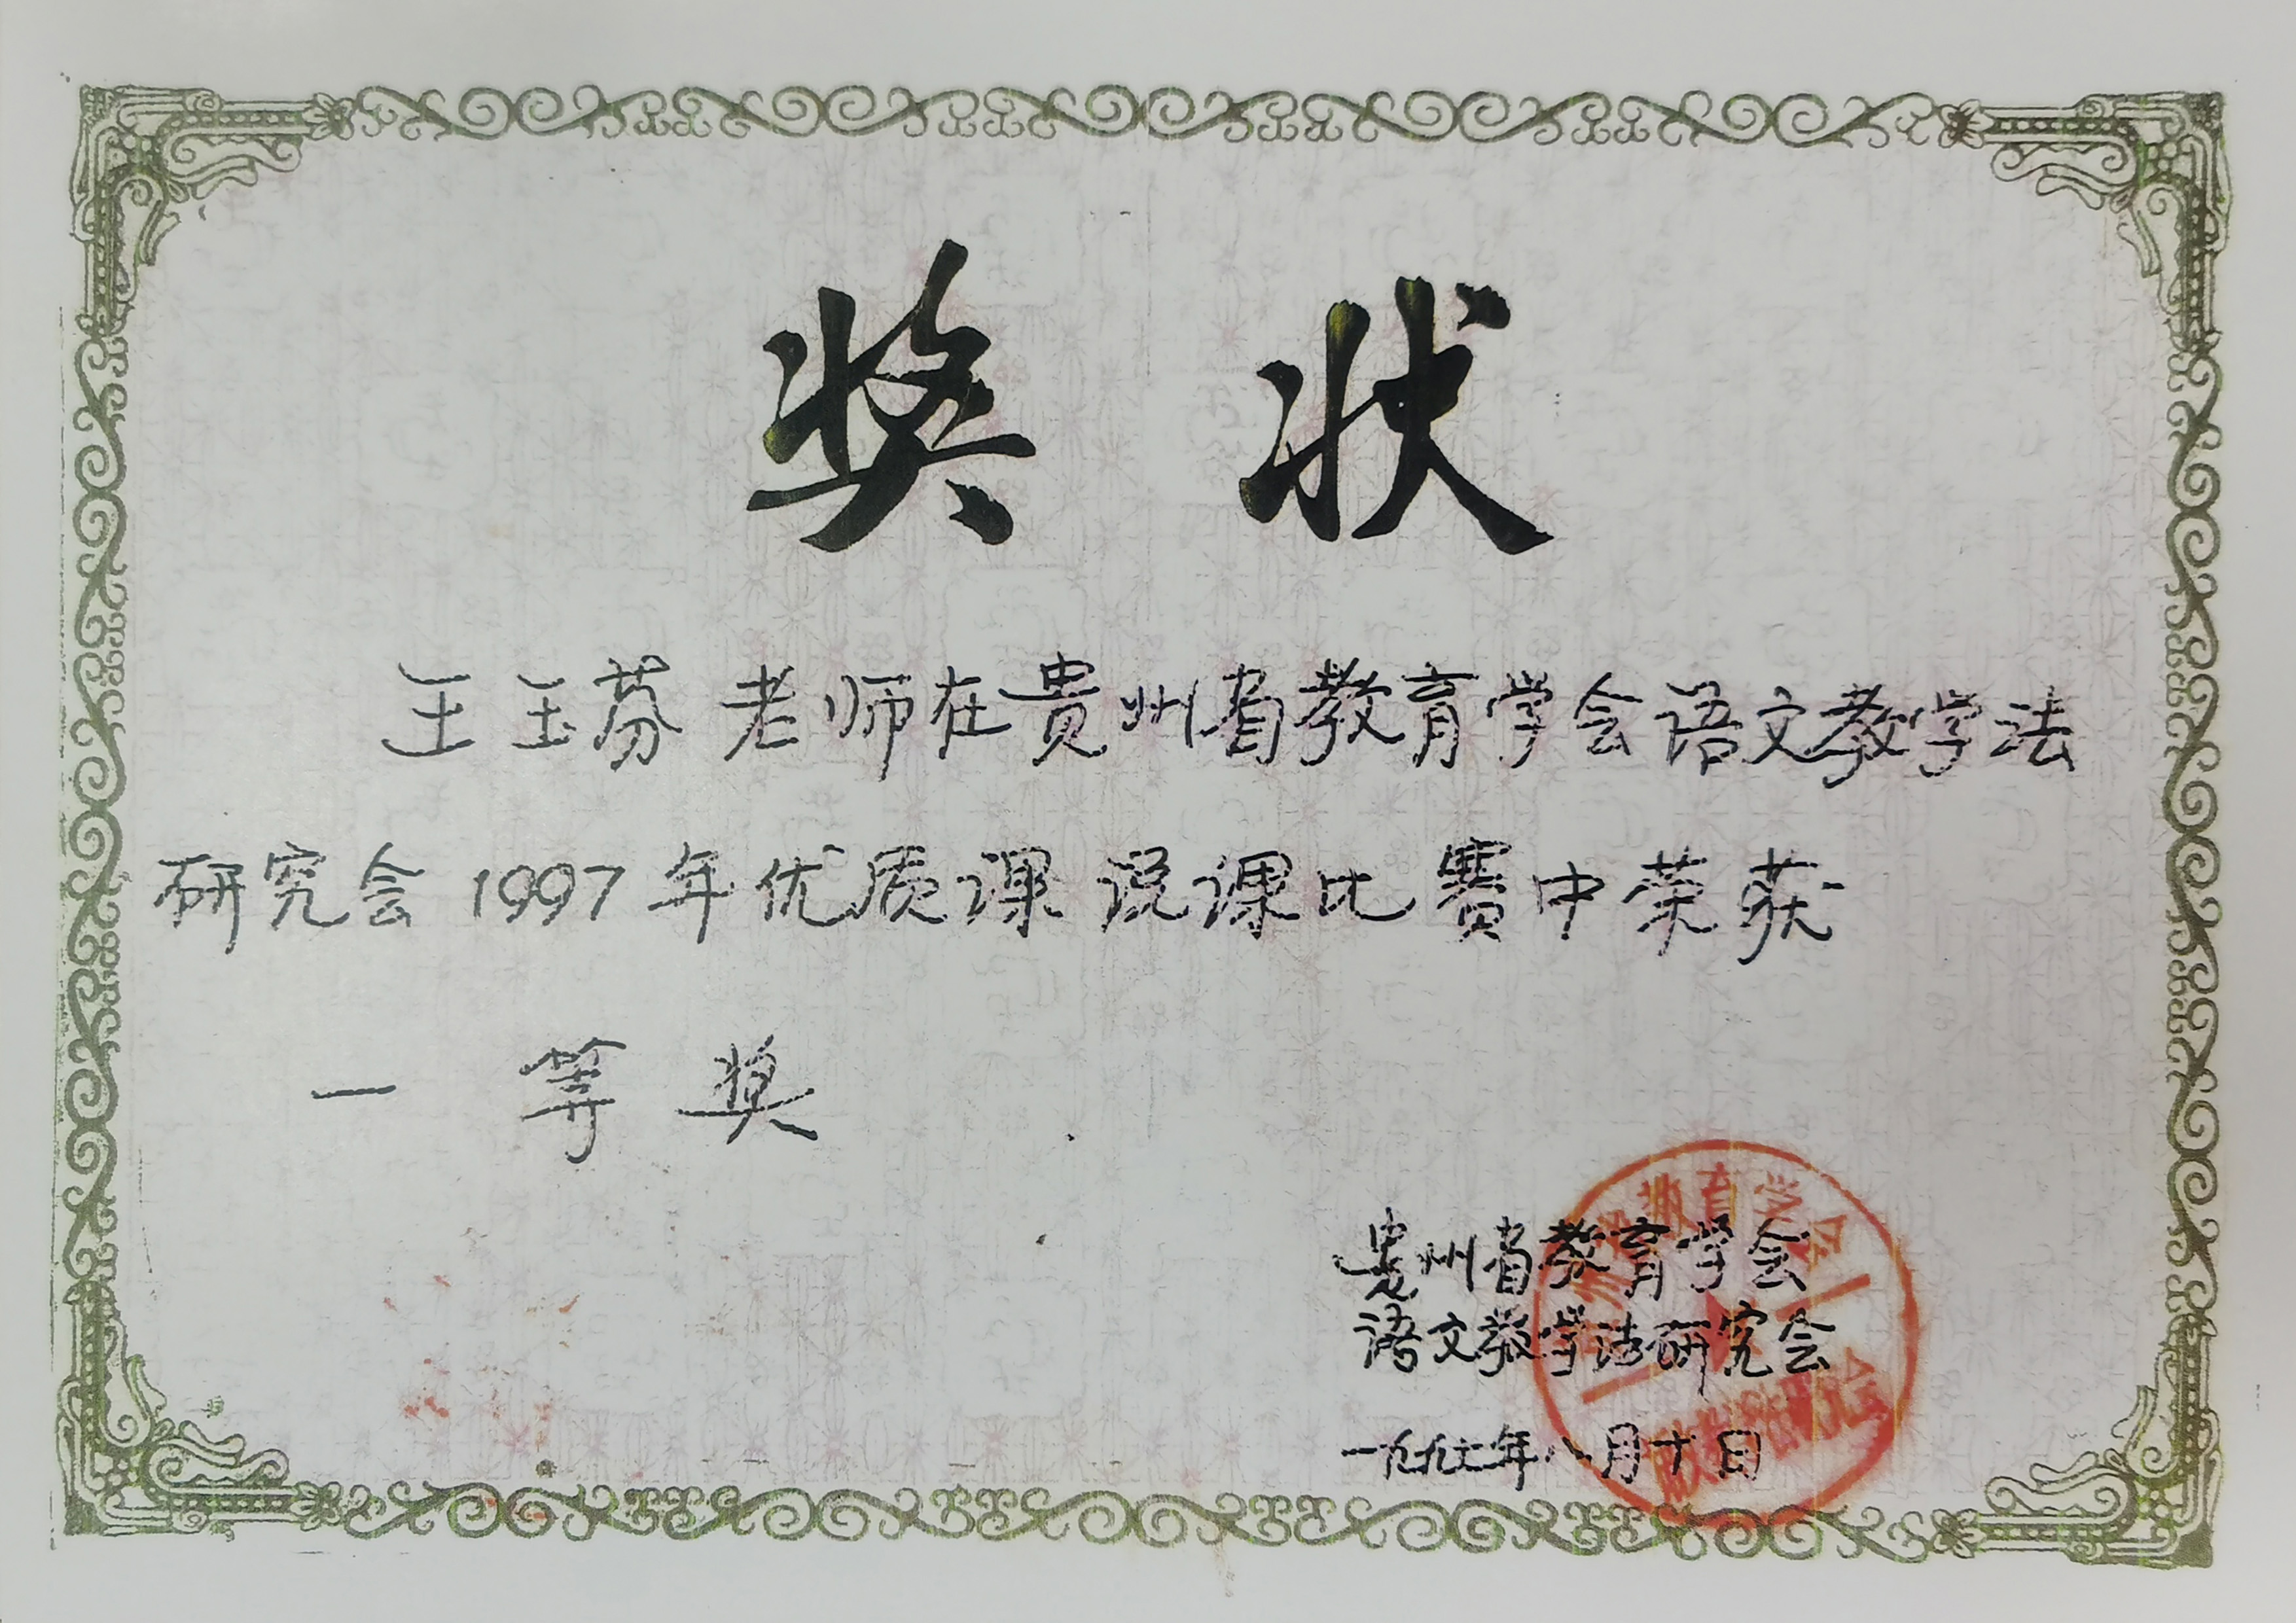 奖 状
王玉芬 老师在贵州省教育学会语文教学法
研究会 1997 年优质课 说课比赛中荣获
一 等 奖
贵州省教育学会
语文教学法研究会
一九九七年八月十日
教育学会